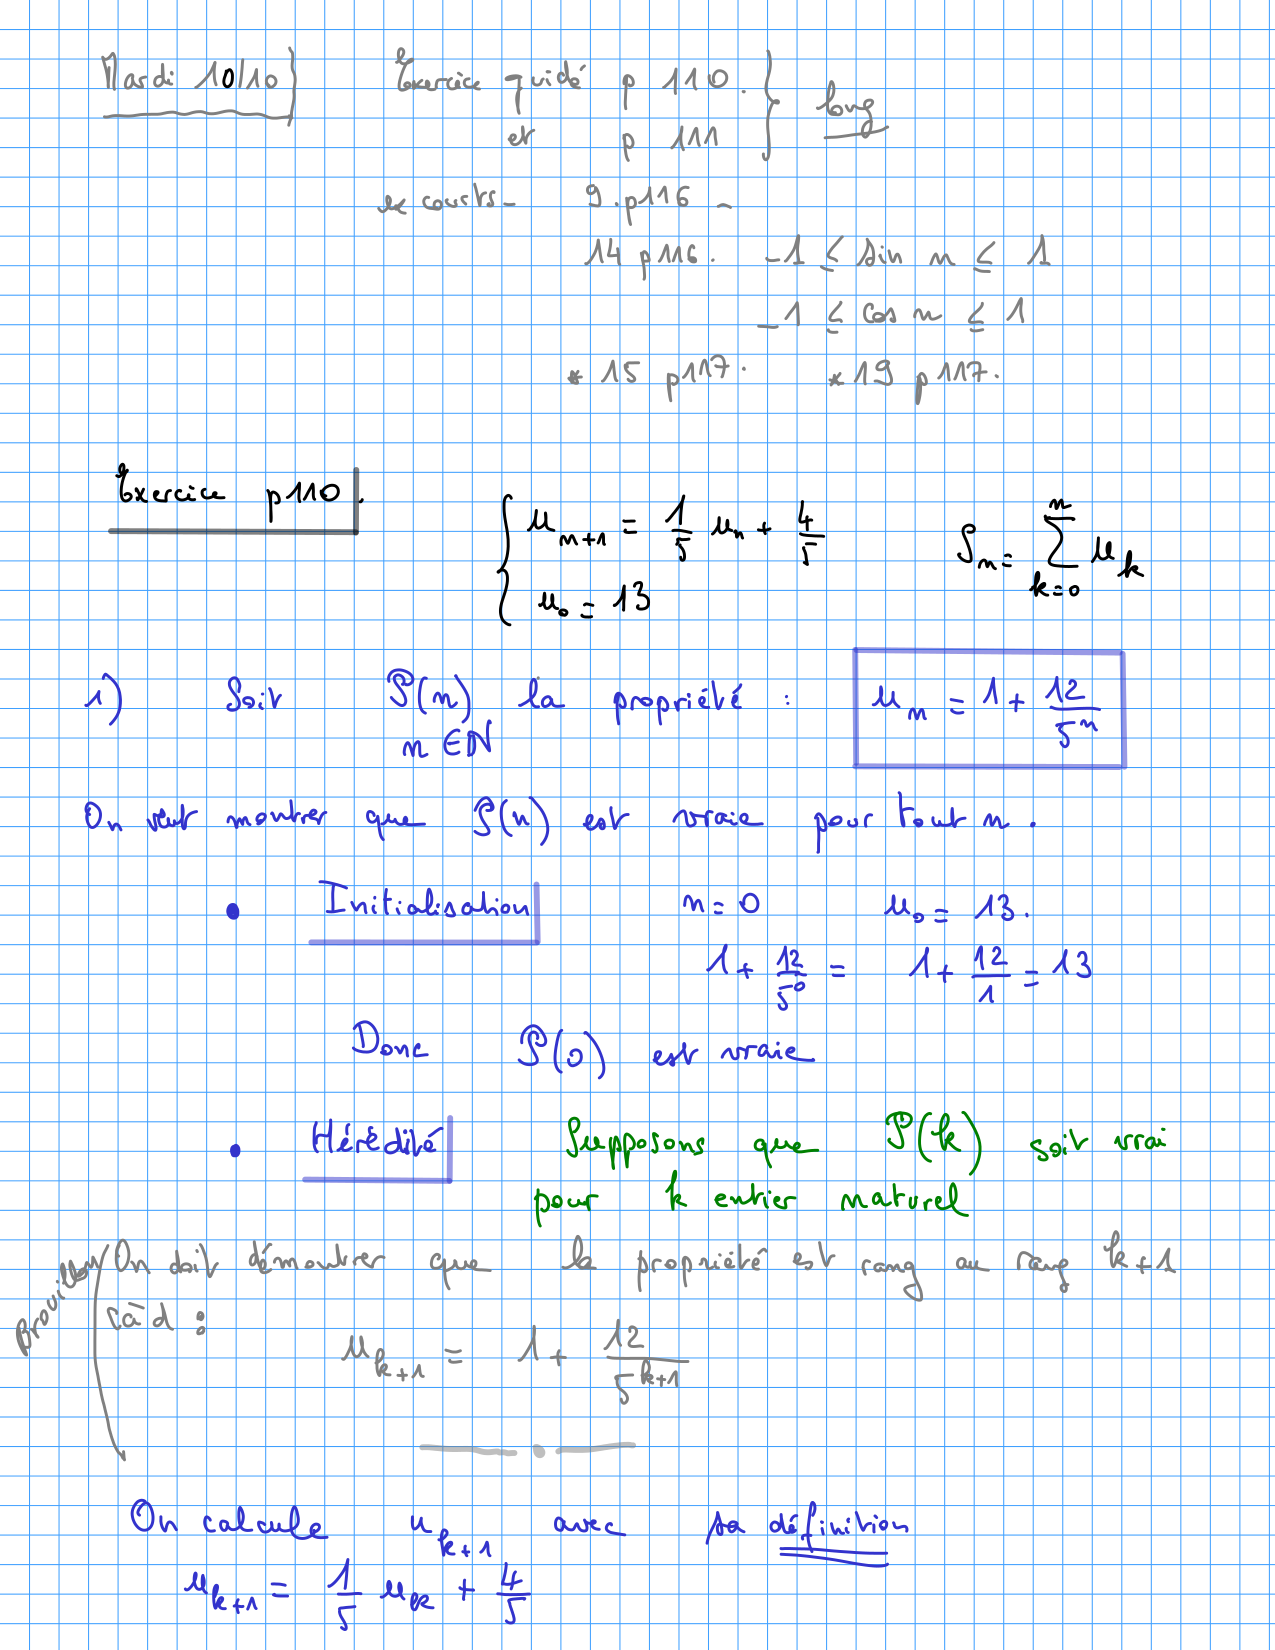 Mardi 10/10 Exercice guidé p 110. long
et p 111
ex courts - 9 . p116 -
14 p116. -1 ≤ sin n ≤ 1
-1 ≤ cos n ≤ 1
* 15 p117. * 19 p117.
Exercice p110. { u_{n+1} = 1/5 u_n + 4/5 S_n = ∑_{k=0}^{n} u_k
u_0 = 13
1) Soit P(n) la propriété : u_n = 1 + 12/5^n
n ∈ ℕ
On veut montrer que P(n) est vraie pour tout n .
• Initialisation n = 0 u_0 = 13.
1 + 12/5^0 = 1 + 12/1 = 13
Donc P(0) est vraie
• Hérédité Supposons que P(k) soit vrai
pour k entier naturel
Brouillon On doit démontrer que la propriété est rang au rang k+1
càd :
u_{k+1} = 1 + 12/5^{k+1}
On calcule u_{k+1} avec sa définition
u_{k+1} = 1/5 u_k + 4/5